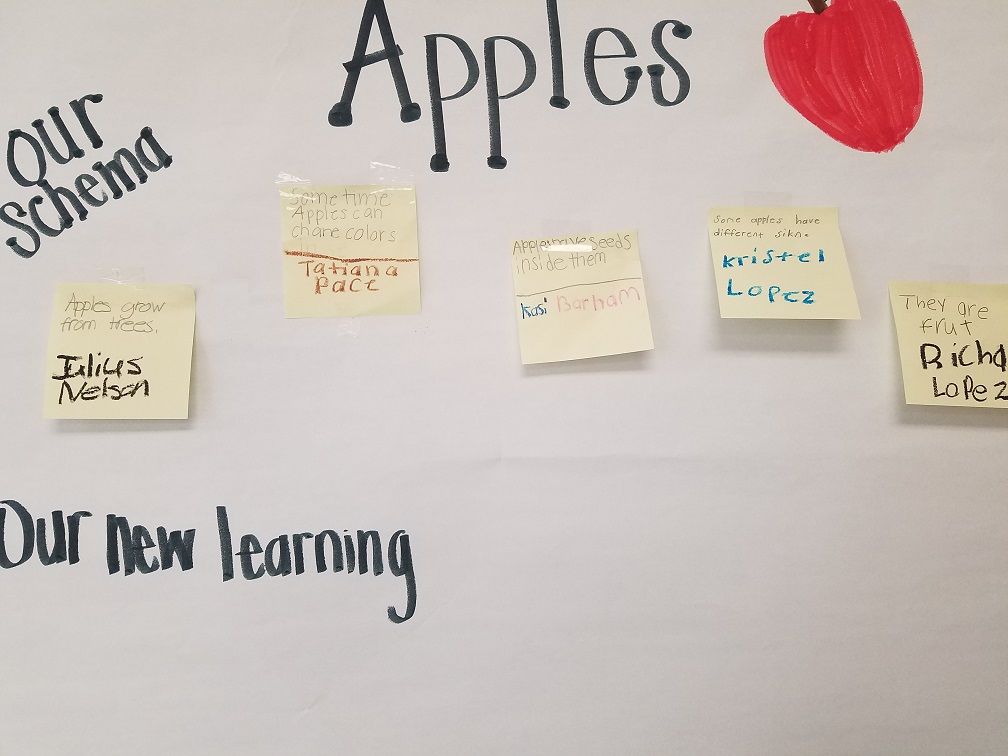 Apples
our
schema
Apples grow
from trees.
Julius
Nelson
Some time
Apples can
chane colors
Tatiana
Pace
Apples have seeds
inside them
Kasi Barham
Some apples have
different sikn.
Kristel
Lopez
They are
frut
Richa
Lopez
Our new learning